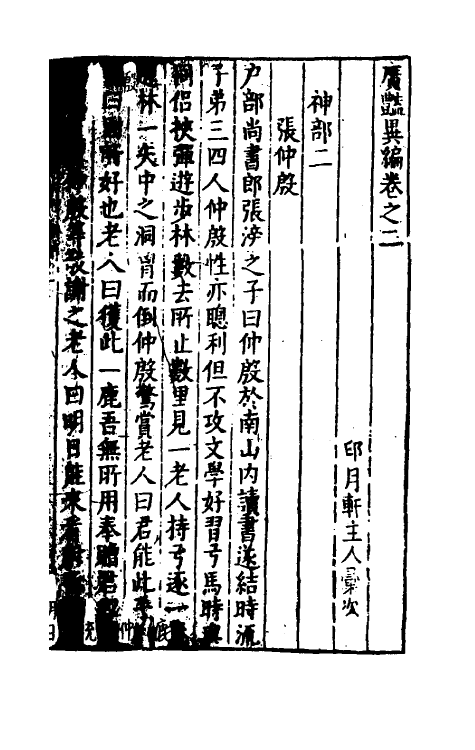 廣艷異編卷之二
印月軒主人彙次
神部二
張仲殷
户部尚書郎張滂之子曰仲殷於南山内讀書遂結時流
子弟三四人仲殷性亦聰利但不攻文學好習弓馬時與
同侣挾彈遊步林藪去所止數里見一老人持弓逐一鹿
林一矢中之洞胷而倒仲殷驚賞老人曰君能此乎
曰所好也老人曰獲此一鹿吾無所用奉贈君
仲殷等敬謝之老人曰明日能來看